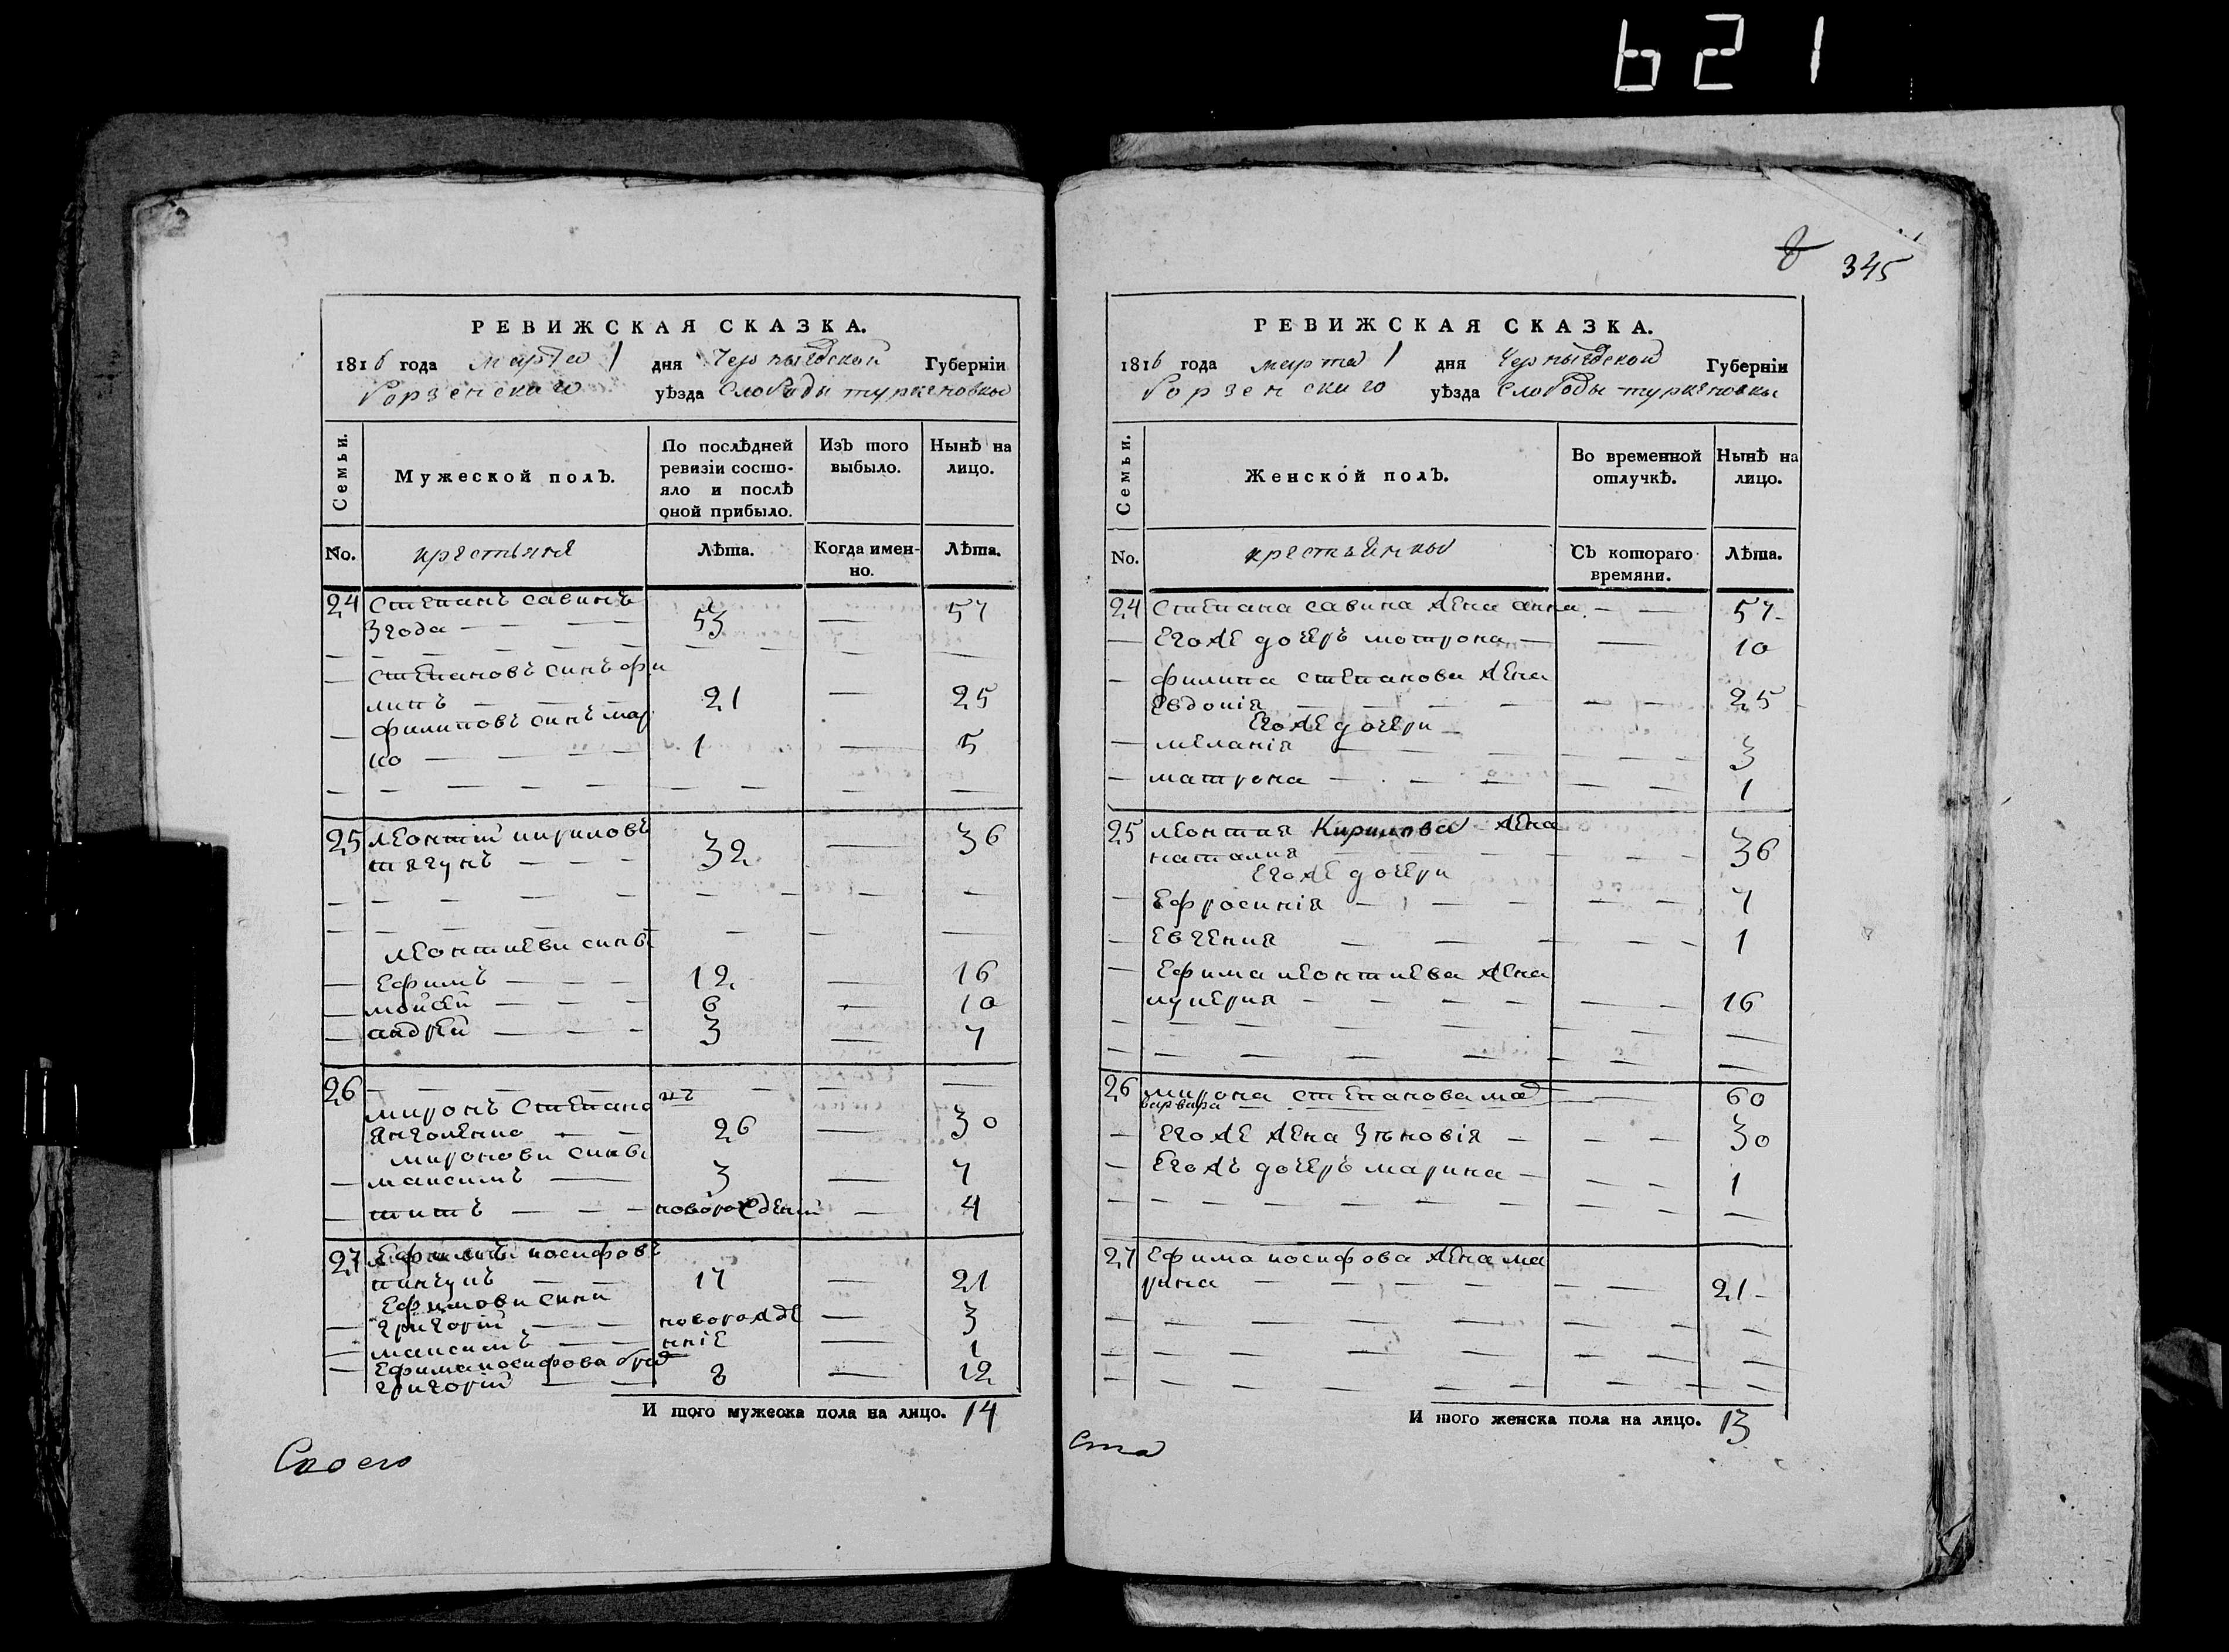 621
РЕВИЖСКАЯ СКАЗКА.
1816 года марта 1 дня Черныговской Губерніи
Борзенскаго уѣзда Слободы туркеновки
Семьи.
Мужеской полъ.
По послѣдней ревизіи состояло и послѣ оной прибыло.
Изъ того выбыло.
Нынѣ на лицо.
No.
крестьяне
Лѣта.
Когда именно.
Лѣта.
24 Степанъ савинъ
Згода — — 53 — 57
Степановъ синъ фи
липъ — 21 — 25
филиповъ синъ мар
ко — 1 — 5
25 леонтій кириловъ 32 — 36
тягунъ — — —
леонтиеви сины
Ефимъ — — — 12 — 16
мойсей — — — 6 — 10
андрей — — — 3 — 7
26
миронъ Степано въ
янголенко — — 26 — 30
миронови сины
максимъ — 3 — 7
титъ — — — новорожденій — 4
27 Ефимъ иосифовъ
пинчукъ — — 17 — 21
Ефимови сини
григорій — — новорожде — 3
максимъ — — нніе — 1
Ефима иосифова брат
григорій — — 8 — 12
И того мужеска пола на лицо. 14
345
РЕВИЖСКАЯ СКАЗКА.
1816 года марта 1 дня Черныговской Губерніи
Борзенскаго уѣзда Слободы туркеновки
Семьи.
Женской полъ.
Во временной отлучкѣ.
Нынѣ на лицо.
No.
крестьянки
Съ котораго времяни.
Лѣта.
24 Степана савина жена анна — — 57
— Егоже дочеръ мотрона — — 10
— филипа степанова жена
Евдокія — — — — — — 25
Егоже дочери
— меланія — — — — — 3
— матрона — — — — — 1
25 леонтия Кирилова жена
наталия — — — — 36
Егоже дочери
— Ефросинія — — — — — 7
— Евгения — — — — — 1
— Ефима леонтиева жена
лукерия — — — — — — 16
26 мирона степанова мат — 60
варвара
— Егоже жена Зѣновія — — — 30
— Егожъ дочеръ марина — — — 1
27 Ефима иосифова жена ма
рина — — — — — — 21
И того женска пола на лицо. 13